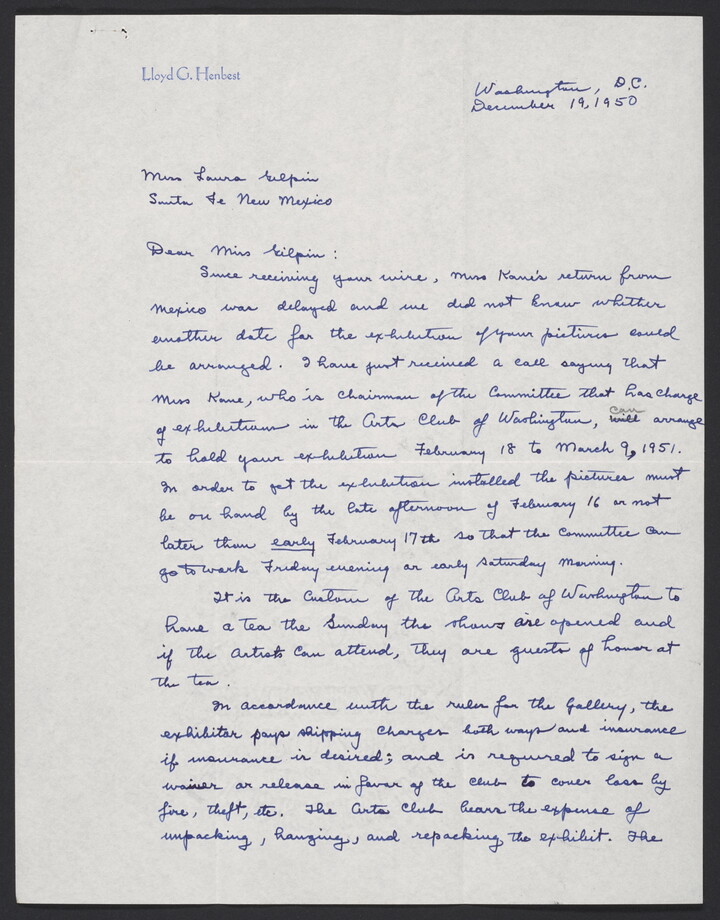 Lloyd G. Henbest
Washington, D.C.
December 19, 1950
Miss Laura Gilpin
Santa Fe New Mexico
Dear Miss Gilpin:
Since receiving your wire, Miss Kane's return from
Mexico was delayed and we did not know whether
another date for the exhibition of your pictures could
be arranged. I have just received a call saying that
Miss Kane, who is chairman of the Committee that has charge
of exhibitions in the Arts Club of Washington, can arrange
to hold your exhibition February 18 to March 9, 1951.
In order to get the exhibition installed the pictures must
be on hand by the late afternoon of February 16 or not
later than early February 17th so that the committee can
go to work Friday evening or early Saturday morning.
It is the custom of the Arts Club of Washington to
have a tea the Sunday the shows are opened and
if the artists can attend, they are guests of honor at
the tea.
In accordance with the rules for the Gallery, the
exhibitor pays shipping charges both ways and insurance
if insurance is desired; and is required to sign a
waiver or release in favor of the club to cover loss by
fire, theft, etc. The Arts Club bears the expense of
unpacking, hanging, and repacking the exhibit. The